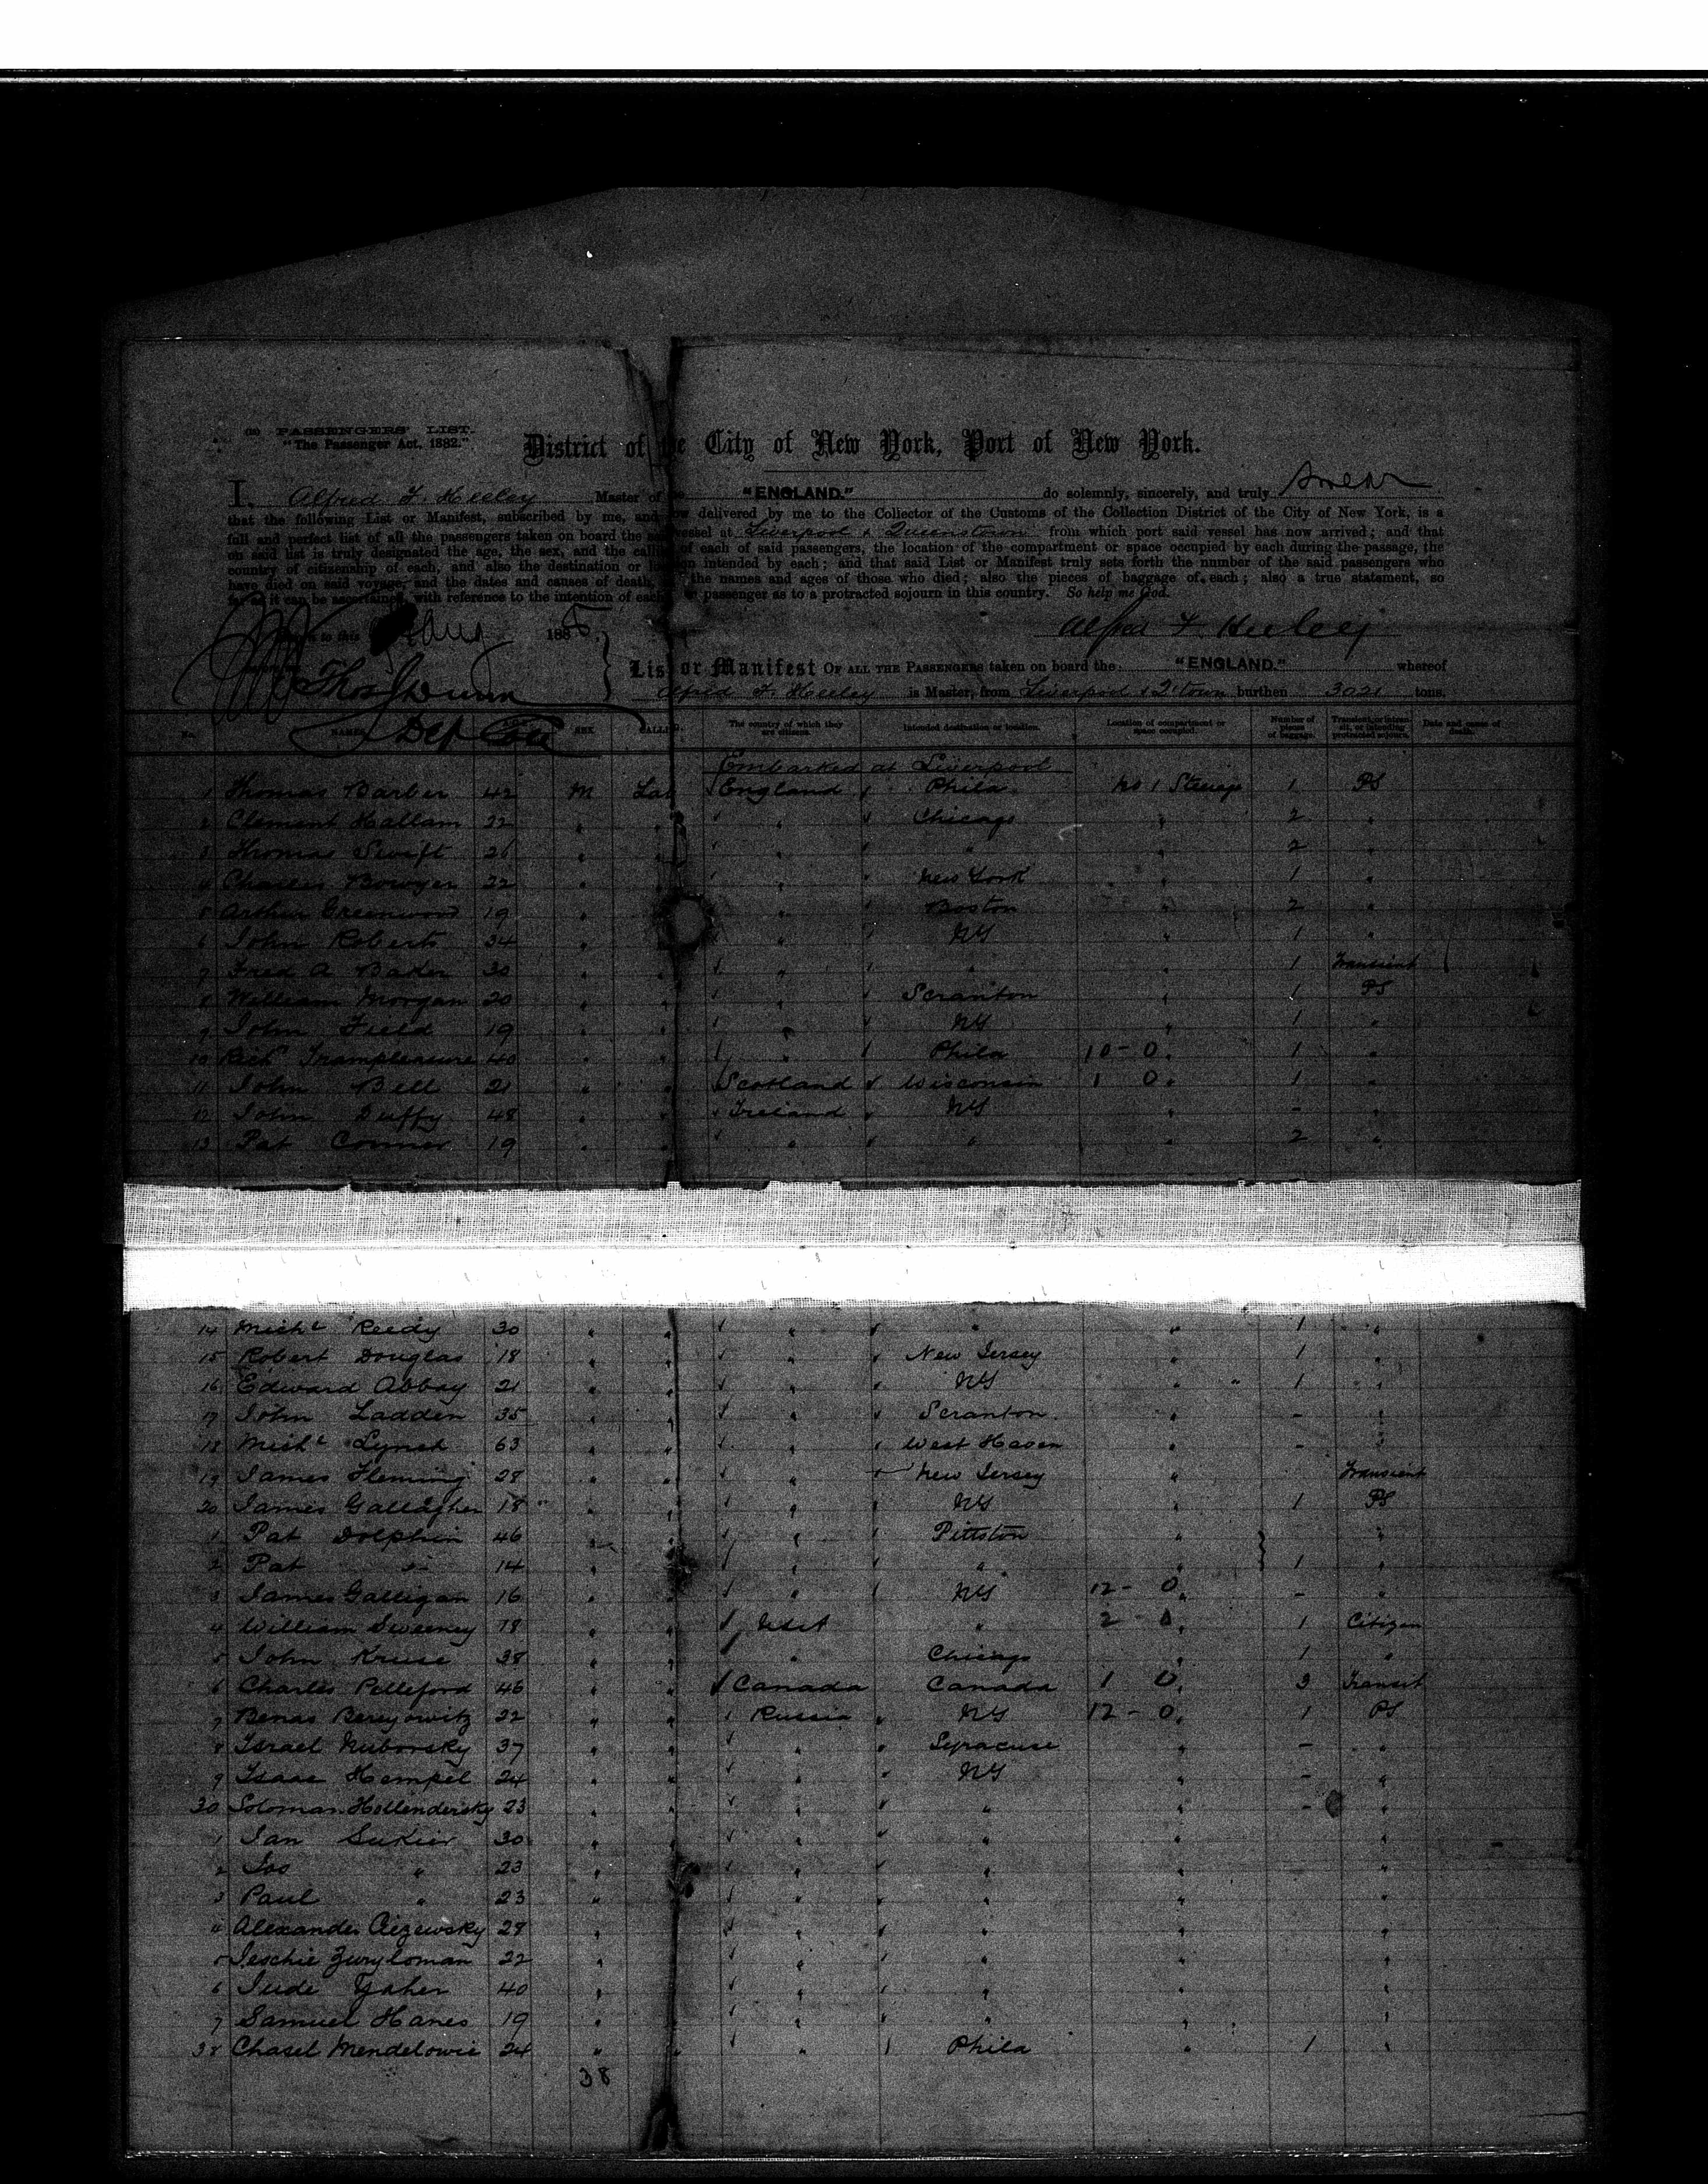 PASSENGERS' LIST.
"The Passenger Act, 1882."
District of the City of New York, Port of New York.
I, Alfred F. Heeley Master of the "ENGLAND." do solemnly, sincerely, and truly swear
that the following List or Manifest, subscribed by me, and now delivered by me to the Collector of the Customs of the Collection District of the City of New York, is a
full and perfect list of all the passengers taken on board the said vessel at Liverpool & Queenstown from which port said vessel has now arrived; and that
on said list is truly designated the age, the sex, and the calling of each of said passengers, the location of the compartment or space occupied by each during the passage, the
country of citizenship of each, and also the destination or location intended by each; and that said List or Manifest truly sets forth the number of the said passengers who
have died on said voyage, and the dates and causes of death, the names and ages of those who died; also the pieces of baggage of each; also a true statement, so
far as it can be ascertained, with reference to the intention of each passenger as to a protracted sojourn in this country. So help me God.
to this Aug 188
Alfred F. Heeley
Thos Dunn
Dep Coll
List or Manifest OF ALL THE PASSENGERS taken on board the "ENGLAND." whereof
Alfred F. Heeley is Master, from Liverpool & Q'town burthen 3021 tons.
No. NAMES SEX CALLING The country of which they are citizens. Intended destination or location. Location of compartment or space occupied. Number of pieces of baggage. Transient, or in transit, or intending protracted sojourn. Date and cause of death.
Embarked at Liverpool
1 Thomas Barber 42 M Lab England Phila No 1 Steerage 1 PS
2 Clement Hallam 22 " " " Chicago " 2 "
3 Thomas Swift 26 " " " " " 2 "
4 Charles Bowyer 22 " " " New York " 1 "
5 Arthur Greenwood 19 " " " Boston " 2 "
6 John Roberts 34 " " " NY " 1 "
7 Fred A Baker 30 " " " " " 1 Transient
8 William Morgan 20 " " " Scranton " 1 PS
9 John Field 19 " " " NY " 1 "
10 Richd Trampleasure 40 " " " Phila 10 - 0. 1 "
11 John Bell 21 " " Scotland Wisconsin 1 0. 1 "
12 John Duffy 48 " " Ireland NY " - "
13 Pat Connor 19 " " " " " 2 "
14 Michl Reedy 30 " " " " " 1 "
15 Robert Douglas 18 " " " New Jersey " 1 "
16 Edward Abbay 21 " " " NY " " 1 "
17 John Ladden 35 " " " Scranton " - "
18 Michl Lynch 63 " " " West Haven " - "
19 James Fleming 28 " " " New Jersey " Transient
20 James Gallagher 18 " " " NY " 1 PS
1 Pat Dolphin 46 " " " Pittston " "
2 Pat " 14 " " " " " 1 "
3 James Galligan 16 " " " NY 12 - 0. - "
4 William Sweeney 18 " " " 2 - 0. 1 Citizen
5 John Kruse 38 " " " Chicago " 1 "
6 Charles Pelleford 46 " " Canada Canada 1 0. 3 Transit
7 Benas Bereyowitz 22 " " Russia NY 12 - 0. 1 PS
8 Israel Nubovsky 37 " " " Syracuse " - "
9 Isaac Hempel 24 " " " NY " - "
30 Soloman Hollendersky 23 " " " " " - "
1 Jan Sukier 30 " " " " " "
2 Jos " 23 " " " " " "
3 Paul " 23 " " " " "
4 Alexander Ciezewsky 28 " " " " "
5 Jeschie Zuryloman 22 " " " " "
6 Jude Yaher 40 " " " " "
7 Samuel Hanes 19 " " " " "
38 Chasel Mendelowic 24 " " " Phila " 1 "
38